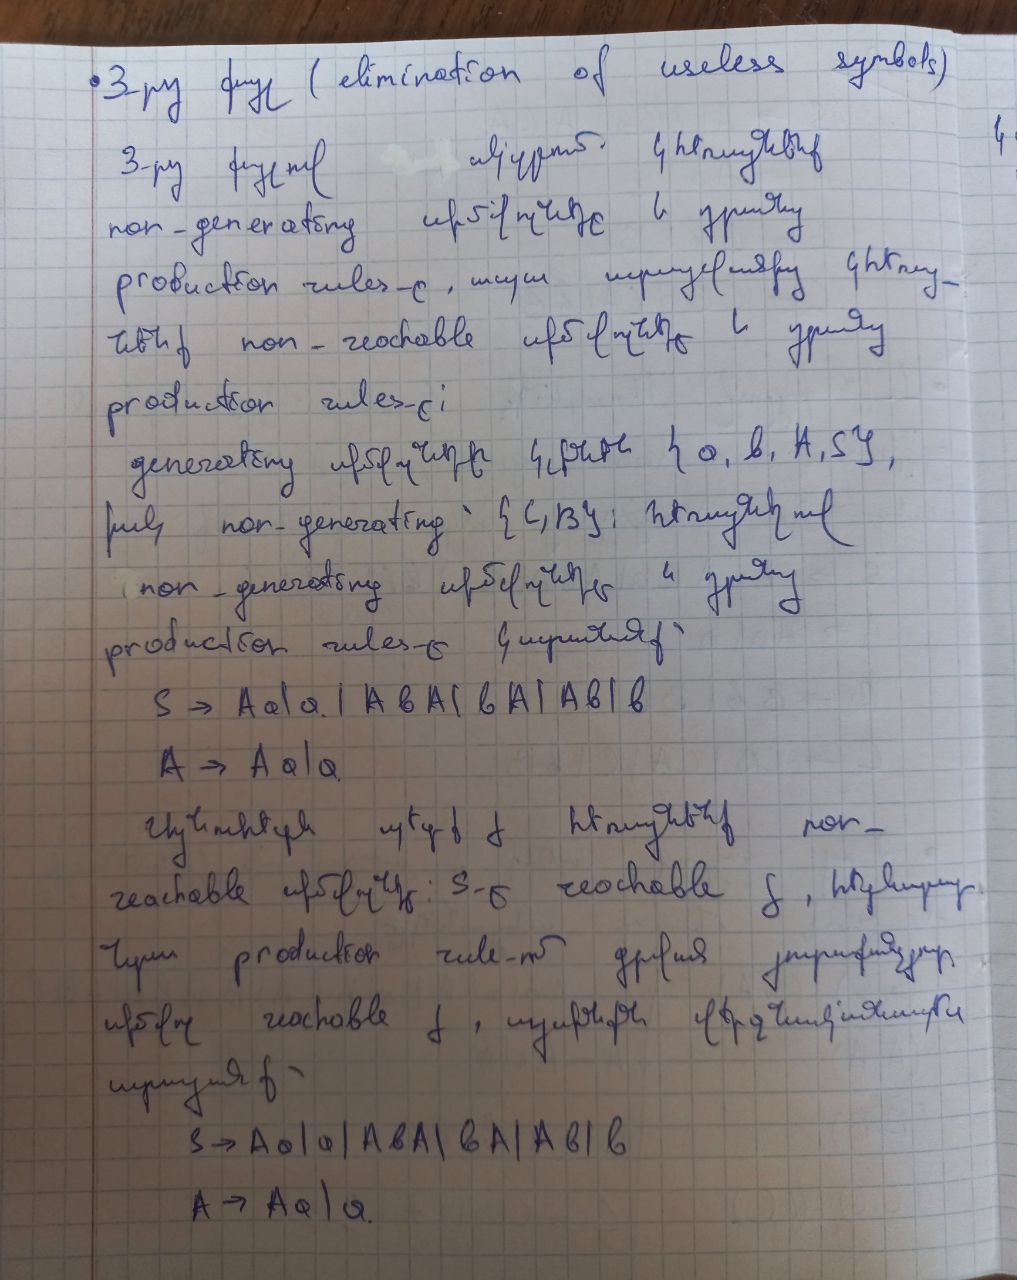 • 3-րդ փուլ (elimination of useless symbols)
3-րդ փուլում սկզբում կհեռացնենք
non-generating սիմվոլները և դրանց
production rules-ը, ապա արդյունքից կհեռաց-
նենք non-reachable սիմվոլները և դրանց
production rules-ը:
generating սիմվոլների կլինեն {a, b, A, S},
իսկ non-generating՝ {C, B}: Հեռացնելով
non-generating սիմվոլները և դրանց
production rules-ը կստանանք՝
S → Aa|a|AbA|bA|Ab|b
A → Aa|a
Այնուհետև պետք է հեռացնենք non-
reachable սիմվոլները: S-ը reachable է, հետևաբար
նրա production rule-ում գրված յուրաքանչյուր
սիմվոլ reachable է, այսինքն վերջնական
ստացանք՝
S → Aa|a|AbA|bA|Ab|b
A → Aa|a